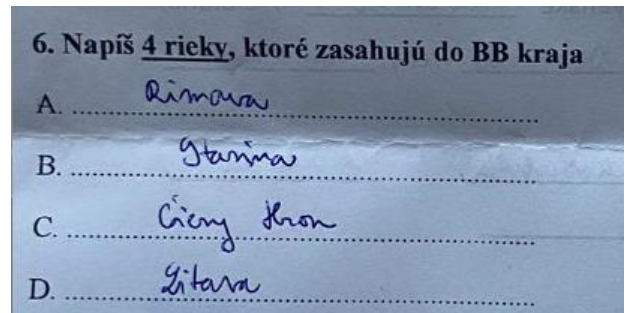 6. Napíš 4 rieky, ktoré zasahujú do BB kraja
A. Rimava
B. Starina
C. Čierny Hron
D. Žitava